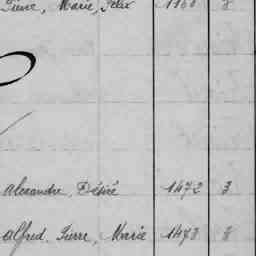 Pierre, Marie, Félix 1160 3
Alexandre, Désiré 1472 3
Alfred, Pierre, Marie 1473 3